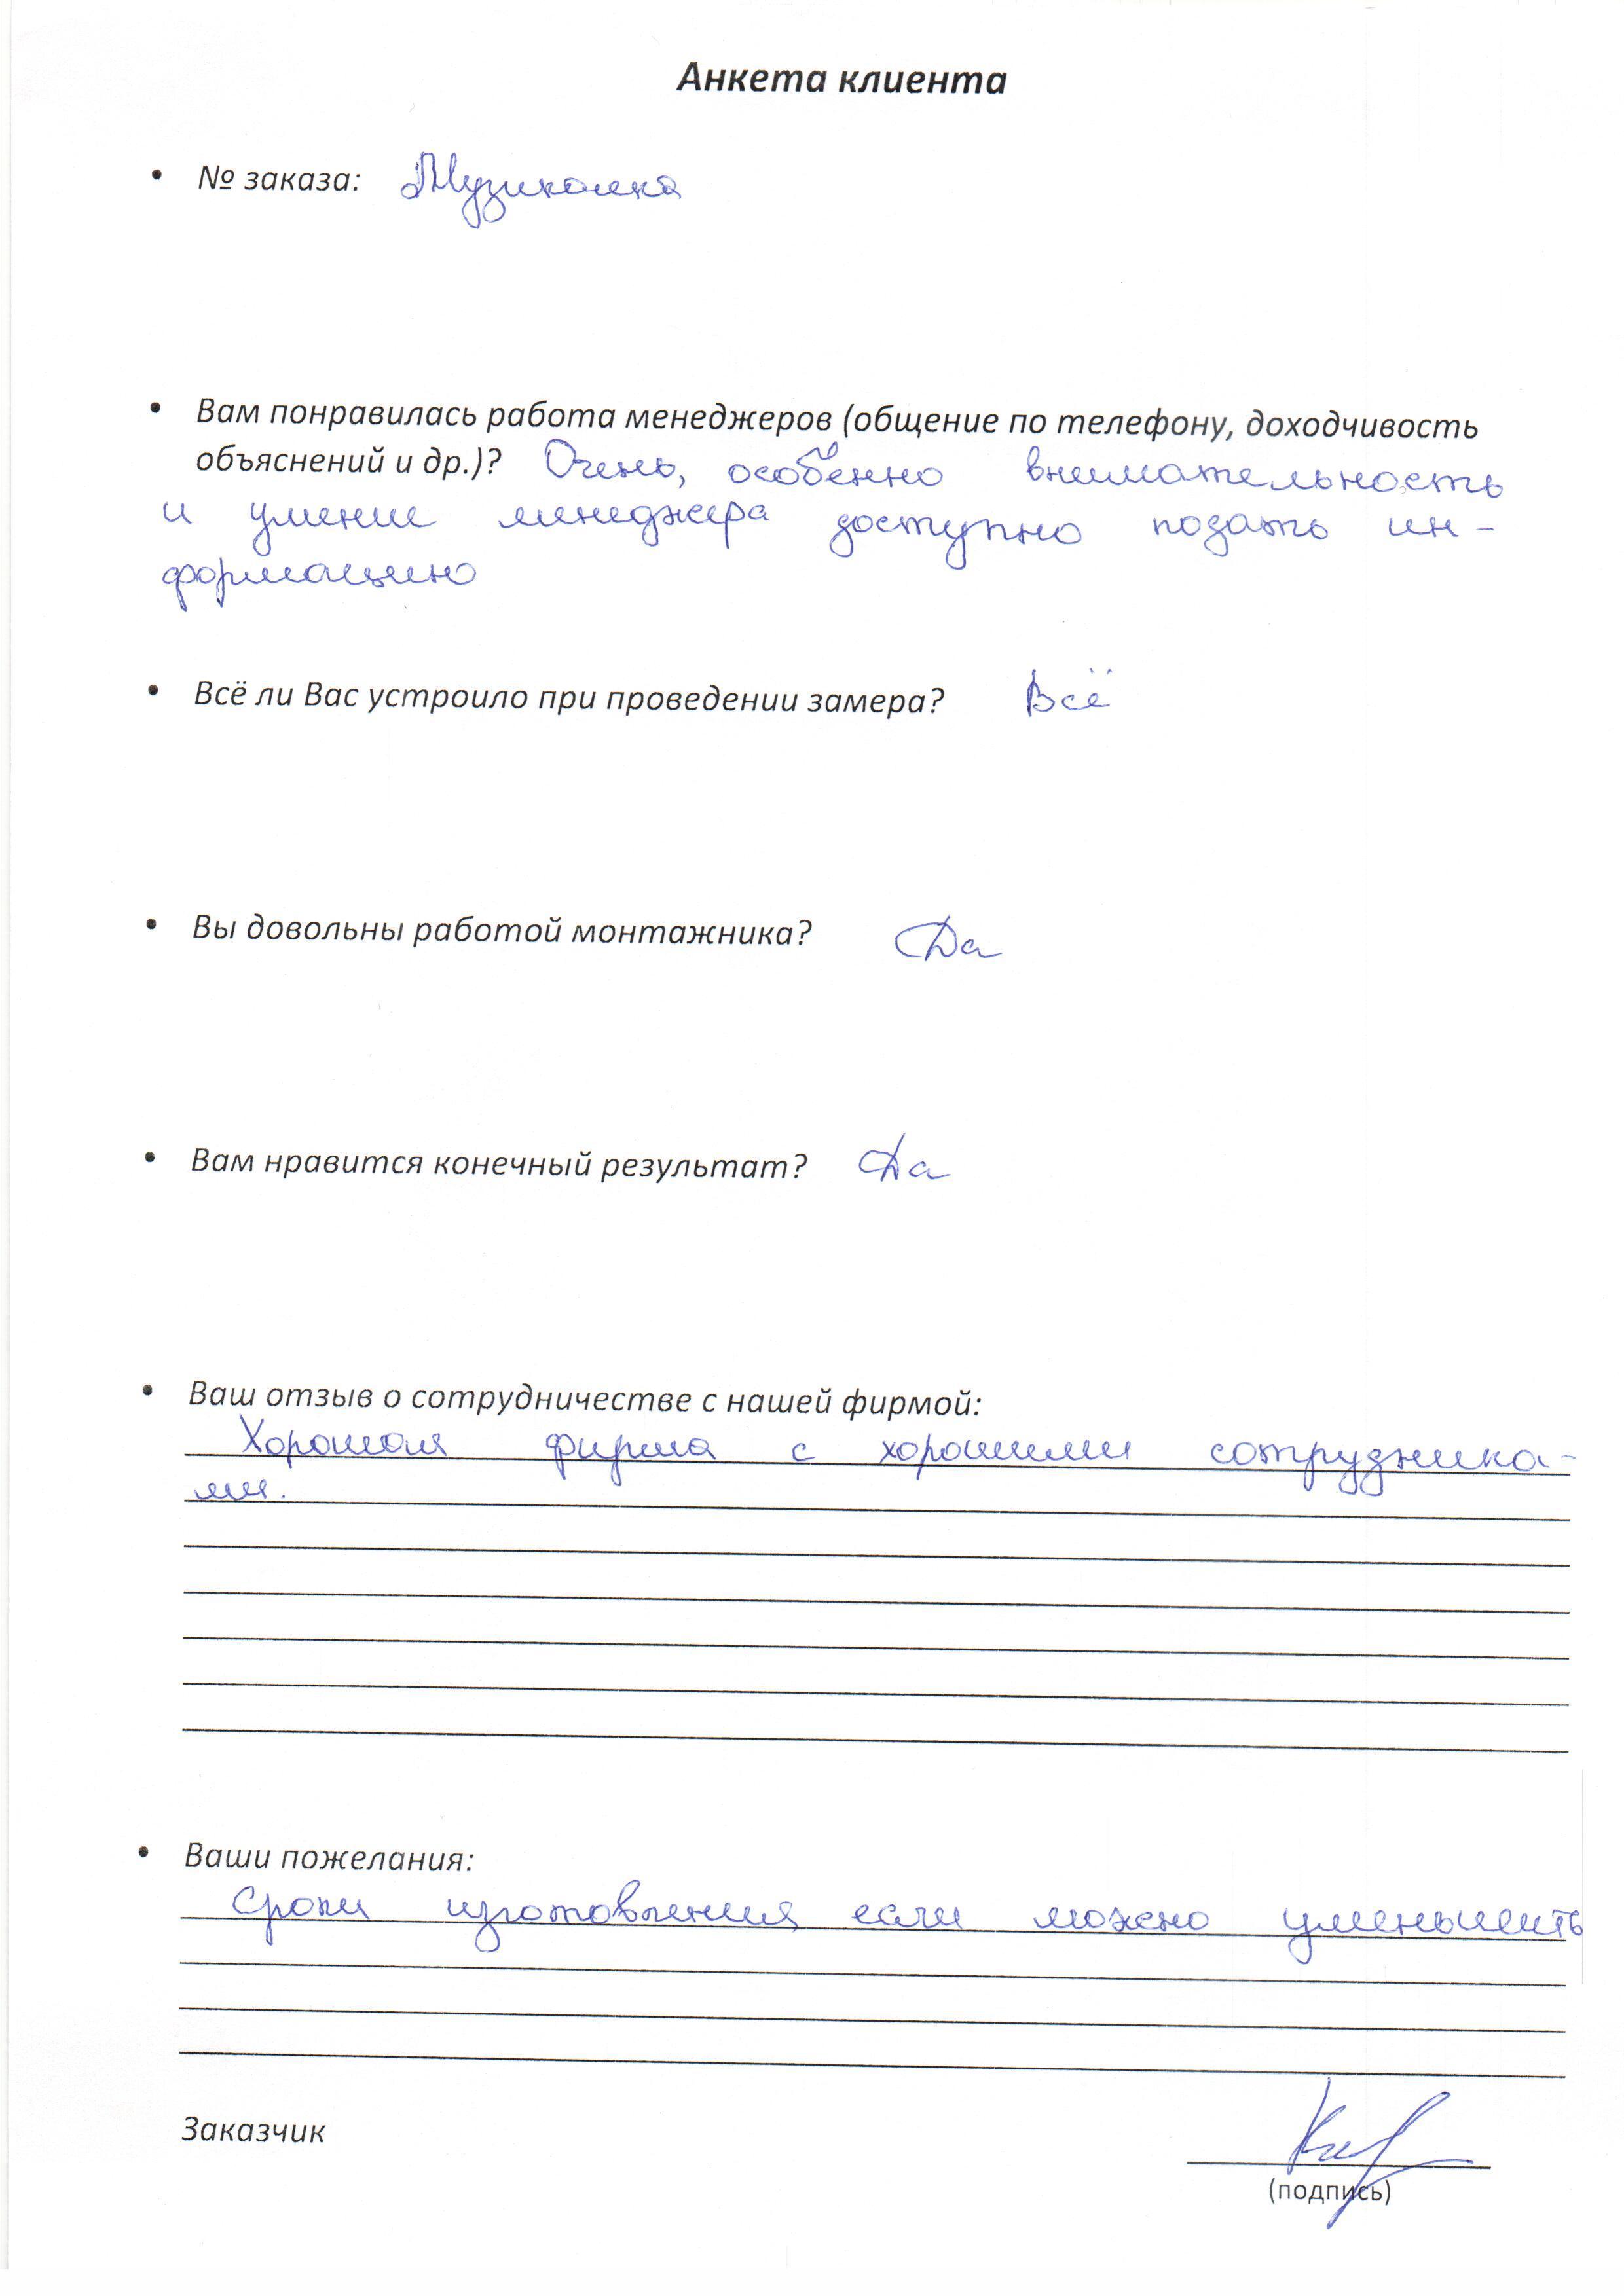 Анкета клиента
• № заказа: Музиколка
• Вам понравилась работа менеджеров (общение по телефону, доходчивость
объяснений и др.)? Очень, особенно внимательность
и умение менеджера доступно подать ин-
формацию
• Всё ли Вас устроило при проведении замера? Всё
• Вы довольны работой монтажника? Да
• Вам нравится конечный результат? Да
• Ваш отзыв о сотрудничестве с нашей фирмой:
Хорошая фирма с хорошими сотрудника-
ми.
• Ваши пожелания:
Сроки изготовления если можно уменьшить
Заказчик
(подпись)